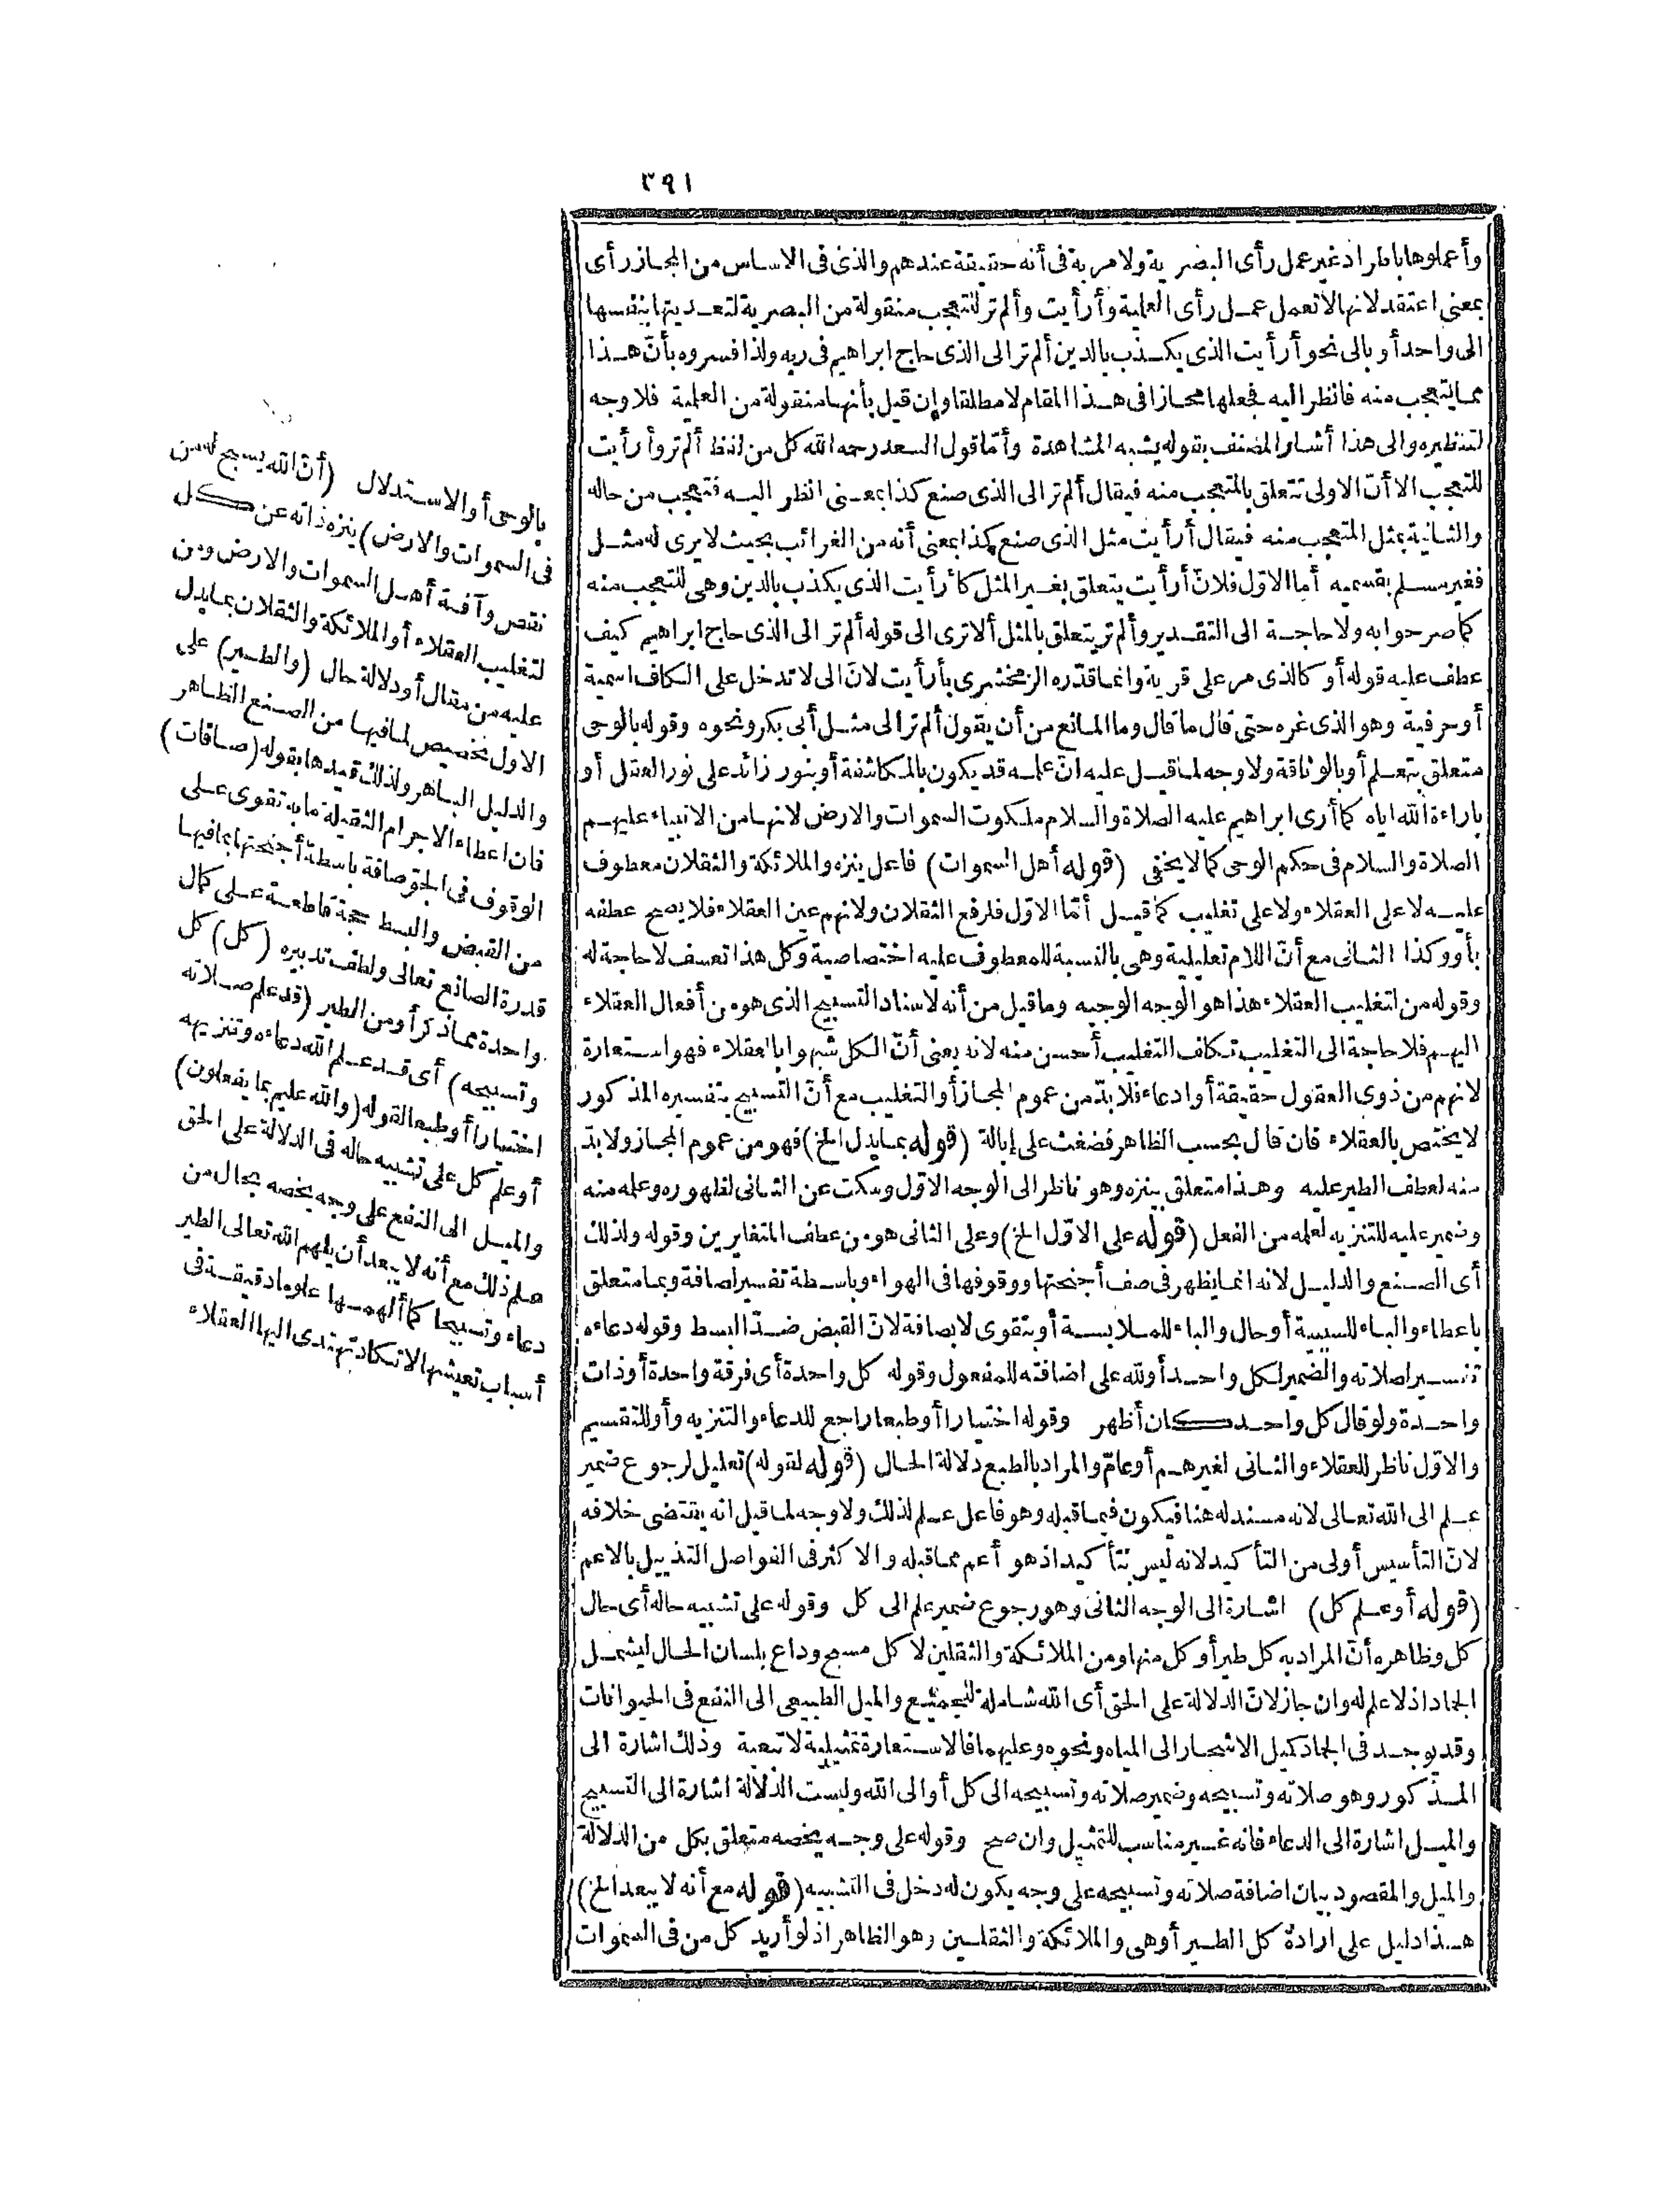 ٣٩١
وأعملوها باطراد غير عمل رأى البصرية ولا مرية فى أنه حقيقة عندهم والذى فى الاساس من المجاز رأى
بمعنى اعتقد لانها لا تعمل عمل رأى العلمية وأرأيت وألم تر للتعجب منقولة من البصرية لتعديتها بنفسها
الى واحد أو بالى نحو أرأيت الذى يكذب بالدين ألم تر الى الذى حاج ابراهيم فى ربه ولذا فسروه بأنّ هذا
مما يتعجب منه فانظر اليه فجعلها مجازا فى هذا المقام لا مطلقا وإن قيل بأنها منقولة من العلمية فلا وجه
لتنظيره والى هذا أشار المصنف بقوله يشبه المشاهدة وأمّا قول السعد رحمه الله كل من لفظ ألم تر وأرأيت
للتعجب الا أنّ الاولى تتعلق بالمتعجب منه فيقال ألم تر الى الذى صنع كذا بمعنى انظر اليه فتعجب من حاله
والثانية بمثل المتعجب منه فيقال أرأيت مثل الذى صنع كذا بمعنى أنه من الغرائب بحيث لا يرى له مثل
فغير مسلم بقسميه أما الاوّل فلانّ أرأيت يتعلق بغير المثل كأرأيت الذى يكذب بالدين وهى للتعجب منه
كما صرحوا به ولا حاجة الى التقدير وألم تر يتعلق بالمثل ألا ترى الى قوله ألم تر الى الذى حاج ابراهيم كيف
عطف عليه قوله أو كالذى مر على قرية وانما قدّره الزمخشرى بأرأيت لانّ الى لا تدخل على الكاف اسمية
أو حرفية وهو الذى غره حتى قال ما قال وما المانع من أن يقول ألم تر الى مثل أبى بكر ونحوه وقوله بالوحى
متعلق بتعلم أو بالوثاقة ولا وجه لما قيل عليه انّ علمه قد يكون بالمكاشفة أو بنور زائد على نور العقل أو
باراءة الله اياه كما أرى ابراهيم عليه الصلاة والسلام ملكوت السموات والارض لانها من الانبياء عليهم
الصلاة والسلام فى حكم الوحى كما لا يخفى (قوله أهل السموات) فاعل ينزه والملائكة والثقلان معطوف
عليه لا على العقلاء ولا على تغليب كما قيل أمّا الاوّل فلرفع الثقلان ولانهم عين العقلاء فلا يصح عطفه
بأو وكذا الثانى مع أنّ اللام تعليلية وهى بالنسبة للمعطوف عليه اختصاصية وكل هذا تعسف لا حاجة له
وقوله من لتغليب العقلاء هذا هو الوجه الوجيه وما قيل من أنه لاسناد التسبيح الذى هو من أفعال العقلاء
اليهم فلا حاجة الى التغليب تكاف التغليب أحسن منه لانه يعنى أنّ الكل شبهوا بالعقلاء فهو استعارة
لانهم من ذوى العقول حقيقة أو ادعاء فلا بدّ من عموم المجاز أو التغليب مع أنّ التسبيح بتفسيره المذكور
لا يختص بالعقلاء فان قال بحسب الظاهر فضغث على إبالة (قوله بما يدل الخ) فهو من عموم المجاز ولا بدّ
منه لعطف الطير عليه وهذا متعلق بينزه وهو ناظر الى الوجه الاوّل وسكت عن الثانى لظهوره وعلمه منه
وضمير عليه للتنزيه لعلمه من الفعل (قوله على الاوّل الخ) وعلى الثانى هو من عطف المتغايرين وقوله ولذلك
أى الصنع والدليل لانه انما يظهر فى صف أجنحتها ووقوفها فى الهواء وباسطة تفسير لصافة وبما متعلق
باعطاء والباء للسببية أو حال والباء للملابسة أو بتقوى لا بصافة لانّ القبض ضدّ البسط وقوله دعاءه
تفسير لصلاته والضمير لكل واحد أو لله على اضافته للمفعول وقوله كل واحدة أى فرقة واحدة أو ذات
واحدة ولو قال كل واحد كان أظهر وقوله اختيارا أو طبعا راجع للدعاء والتنزيه وأو للتقسيم
والاوّل ناظر للعقلاء والثانى لغيرهم أو عامّ والمراد بالطبع دلالة الحال (قوله لقوله) تعليل لرجوع ضمير
علم الى الله تعالى لانه مسند له هنا فيكون فيما قبله وهو فاعل علم لذلك ولا وجه لما قيل انه يقتضى خلافه
لانّ التأسيس أولى من التأكيد لانه ليس بتأكيد اذ هو أعم مما قبله والاكثر فى الفواصل التذييل بالاعم
(قوله أو علم كل) اشارة الى الوجه الثانى وهو رجوع ضمير علم الى كل وقوله على تشبيه حاله أى حال
كل وظاهره أنّ المراد به كل طير أو كل منها ومن الملائكة والثقلين لا كل مسبح وداع بلسان الحال ليشمل
الجماد اذ لا علم له وان جاز لانّ الدّلالة على الحق أى الله شاملة للجميع والميل الطبيعى الى النفع فى الحيوانات
وقد يوجد فى الجماد كميل الاشجار الى المياه ونحوه وعليهما فالاستعارة تمثيلية لا تبعية وذلك اشارة الى
المذكور وهو صلاته وتسبيحه وضمير صلاته وتسبيحه الى كل أو الى الله وليست الدّلالة اشارة الى التسبيح
والميل اشارة الى الدعاء فانه غير مناسب للتمثيل وان صح وقوله على وجه يخصه متعلق بكل من الدلالة
والميل والمقصود بيان اضافة صلاته وتسبيحه على وجه يكون له دخل فى التشبيه (قوله مع أنه لا يبعد الخ)
هذا دليل على ارادة كل الطير أو هى والملائكة والثقلين وهو الظاهر اذ لو أريد كل من فى السموات
بالوحى أو الاستدلال (أنّ الله يسبح له من
فى السموات والارض) ينزه ذاته عن كل
نقص وآفة أهل السموات والارض ومن
لتغليب العقلاء أو الملائكة والثقلان بما يدل
عليه من مقال أو دلالة حال (والطير) على
الاول تخصيص لما فيها من الصنع الظاهر
والدليل الباهر ولذلك قيدها بقوله (صافات)
فان اعطاء الاجرام الثقيلة ما به تقوى على
الوقوف فى الجوّ صافة باسطة أجنحتها بما فيها
من القبض والبسط حجة قاطعة على كمال
قدرة الصانع تعالى ولطف تدبيره (كل) كل
واحدة مما ذكر أو من الطير (قد علم صلاته
وتسبيحه) أى قد علم الله دعاءه وتنزيهه
اختيارا أو طبعا لقوله (والله عليم بما يفعلون)
أو علم كل على تشبيه حاله فى الدلالة على الحق
والميل الى النفع على وجه يخصه بحال من
علم ذلك مع أنه لا يبعد أن يلهم الله تعالى الطير
دعاء وتسبيحا كما ألهمها علوما دقيقة فى
أسباب تعيشها لا تكاد تهتدى اليها العقلاء